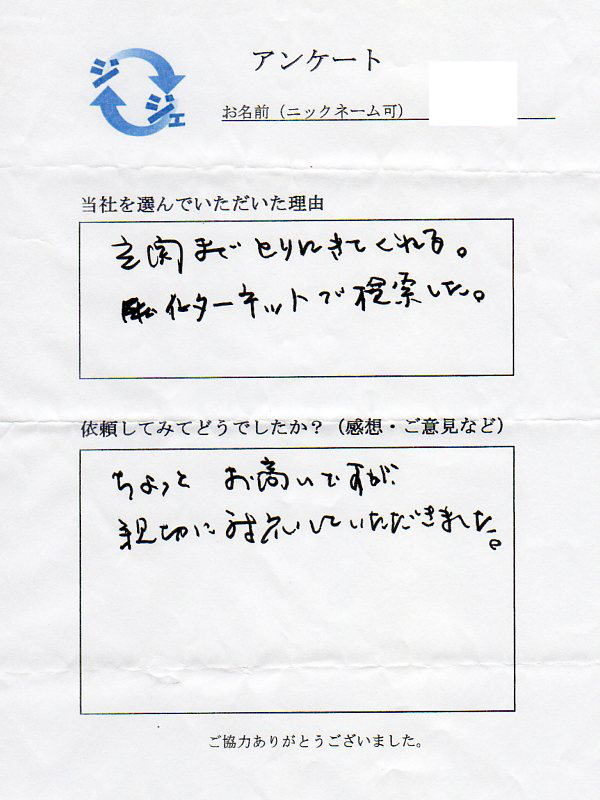 ジジェ
アンケート
お名前（ニックネーム可）
当社を選んでいただいた理由
玄関までとりにきてくれる。
インターネットで検索した。
依頼してみてどうでしたか？（感想・ご意見など）
ちょっとお高いですが、
親切に対応していただきました。
ご協力ありがとうございました。